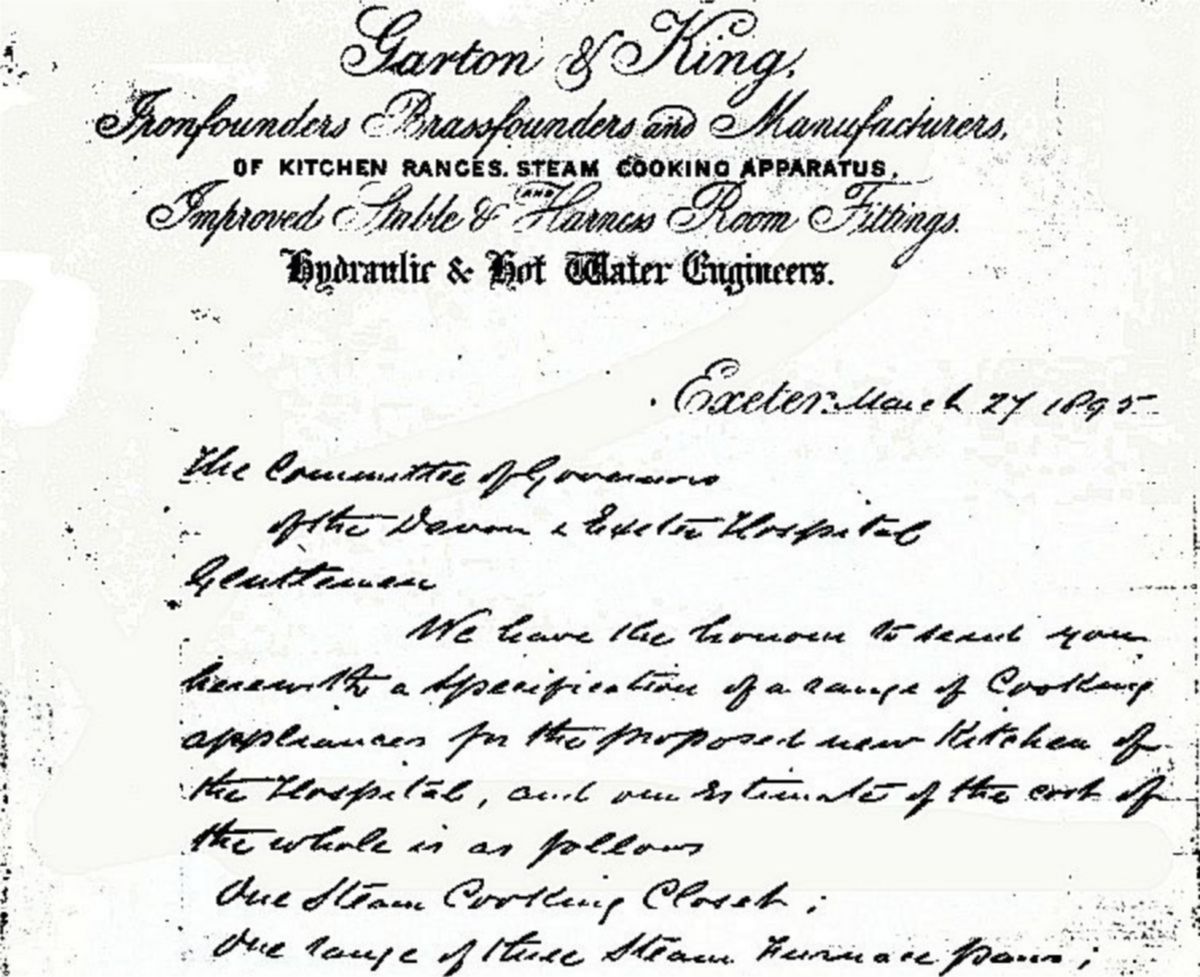 Garton & King,
Ironfounders Brassfounders and Manufacturers,
OF KITCHEN RANGES. STEAM COOKING APPARATUS,
Improved Stable & AND Harness Room Fittings.
Hydraulic & Hot Water Engineers.
Exeter. March 27 1895
The Committee of Governors
of the Devon & Exeter Hospital
Gentlemen
We have the honour to send you
herewith a specification of a range of Cooking
appliances for the proposed new Kitchen of
the Hospital, and our Estimate of the cost of
the whole is as follows
One Steam Cooking Closet;
One range of three Steam Furnace pans;